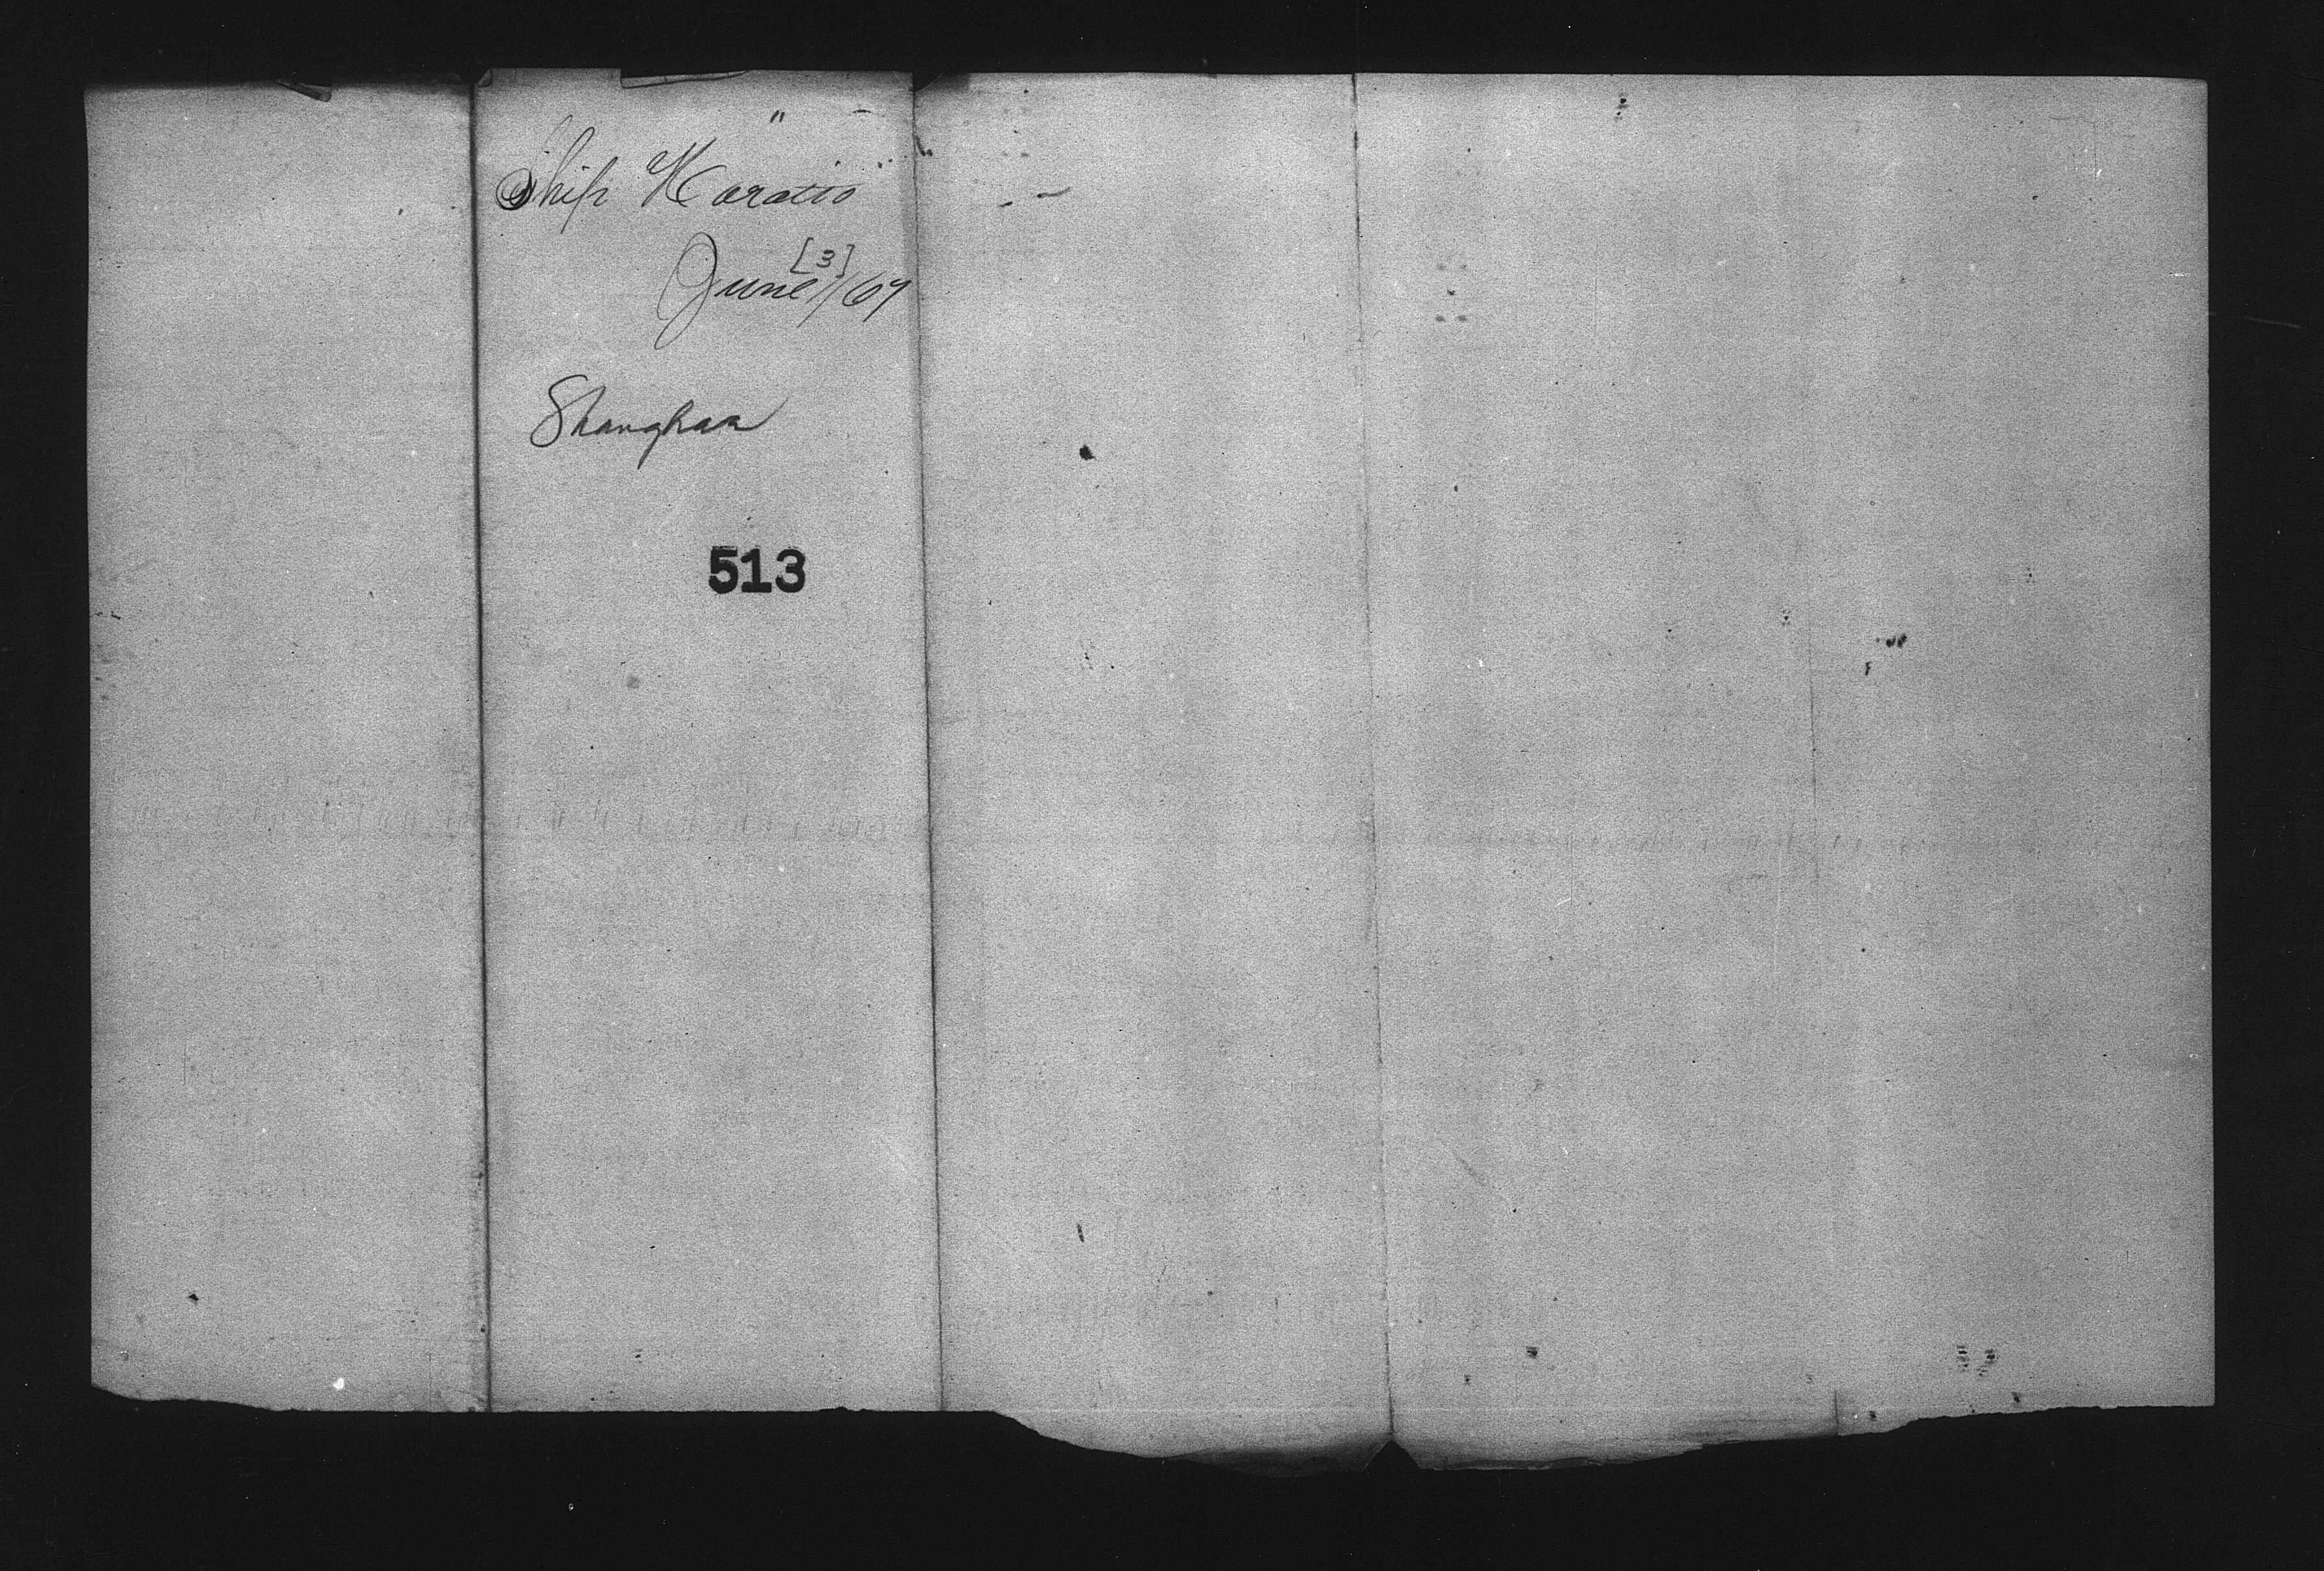 Ship "Horatio"
[3]
June /67
Shanghaa
513